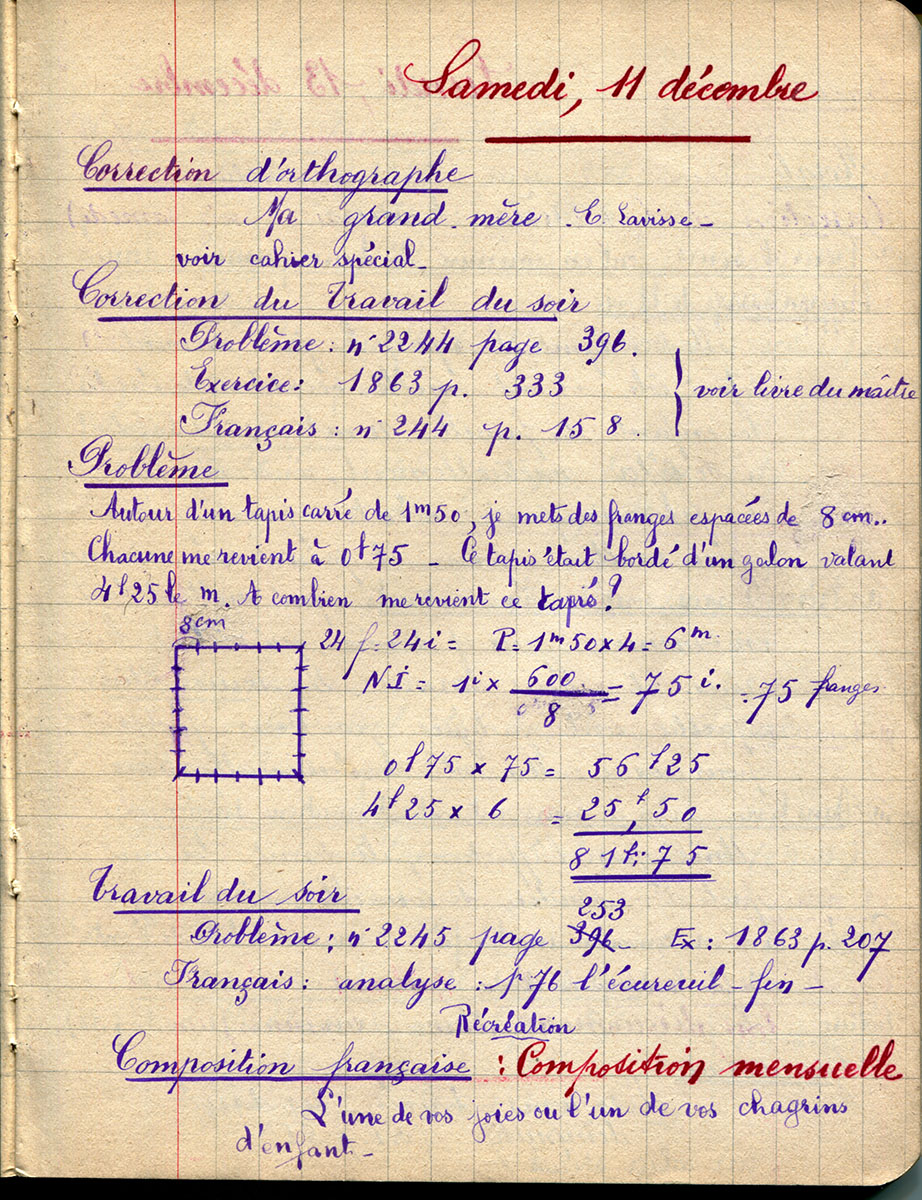 Samedi, 11 décembre
Correction d'orthographe
Ma grand-mère. E Lavisse -
voir cahier spécial -
Correction du travail du soir
Problème : n° 2244 page 396.
Exercice : 1863 p. 333
voir livre du maître
Français : n° 244 p. 158.
Problème
Autour d'un tapis carré de 1m50, je mets des franges espacées de 8cm..
Chacune me revient à 0f75 - Ce tapis était bordé d'un galon valant
4f25 le m. A combien me revient ce tapis?
8cm
24 f = 24 i = P = 1m50 x 4 = 6m
N.I = 1i x 600/8 = 75 i. = 75 franges
0f75 x 75 = 56f25
4f25 x 6 = 25f,50
81f:75
Travail du soir
253
Problème : n° 2245 page 396 - Ex : 1863 p. 207
Français : analyse : p 76 l'écureuil - fin -
Récréation
Composition française : Composition mensuelle
L'une de vos joies ou l'un de vos chagrins
d'enfant -